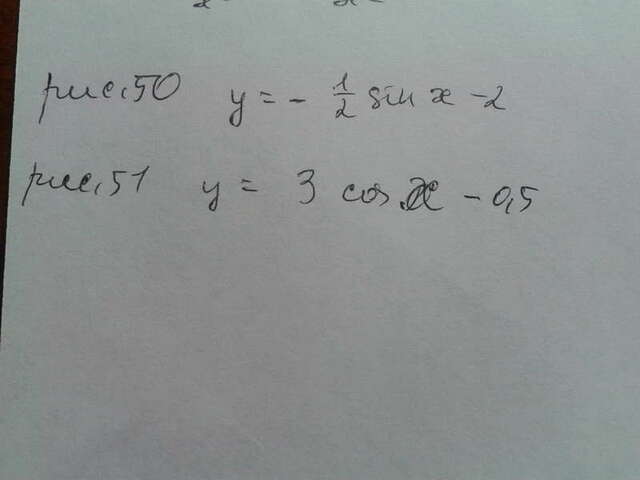 рис.50 y = - 1/2 sin x - 2
рис.51 y = 3 cos x - 0,5